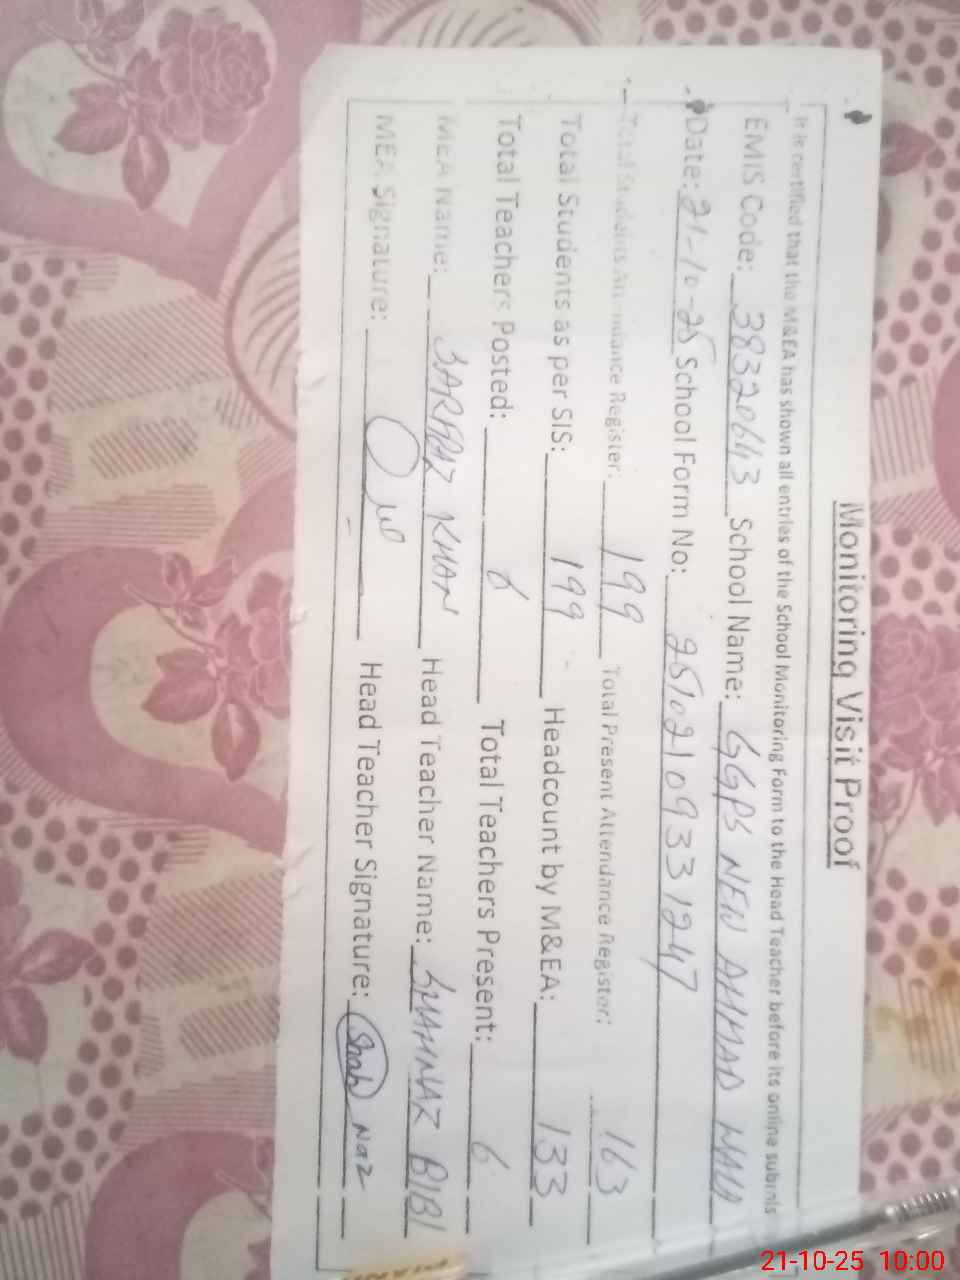 Monitoring Visit Proof
It is certified that the M&EA has shown all entries of the School Monitoring Form to the Head Teacher before its online submis
EMIS Code: 38320643 School Name: GGPS NEW AHMAD WALA
Date: 21-10-25 School Form No: 25102109331247
Total Students Attendance Register: 199 Total Present Attendance Register: 163
Total Students as per SIS: 199 Headcount by M&EA: 133
Total Teachers Posted: 6 Total Teachers Present: 6
MEA Name: SARFRAZ KHAN Head Teacher Name: SHAHNAZ BIBI
MEA Signature: Head Teacher Signature: Shah Naz
PIANO
21-10-25 10:00